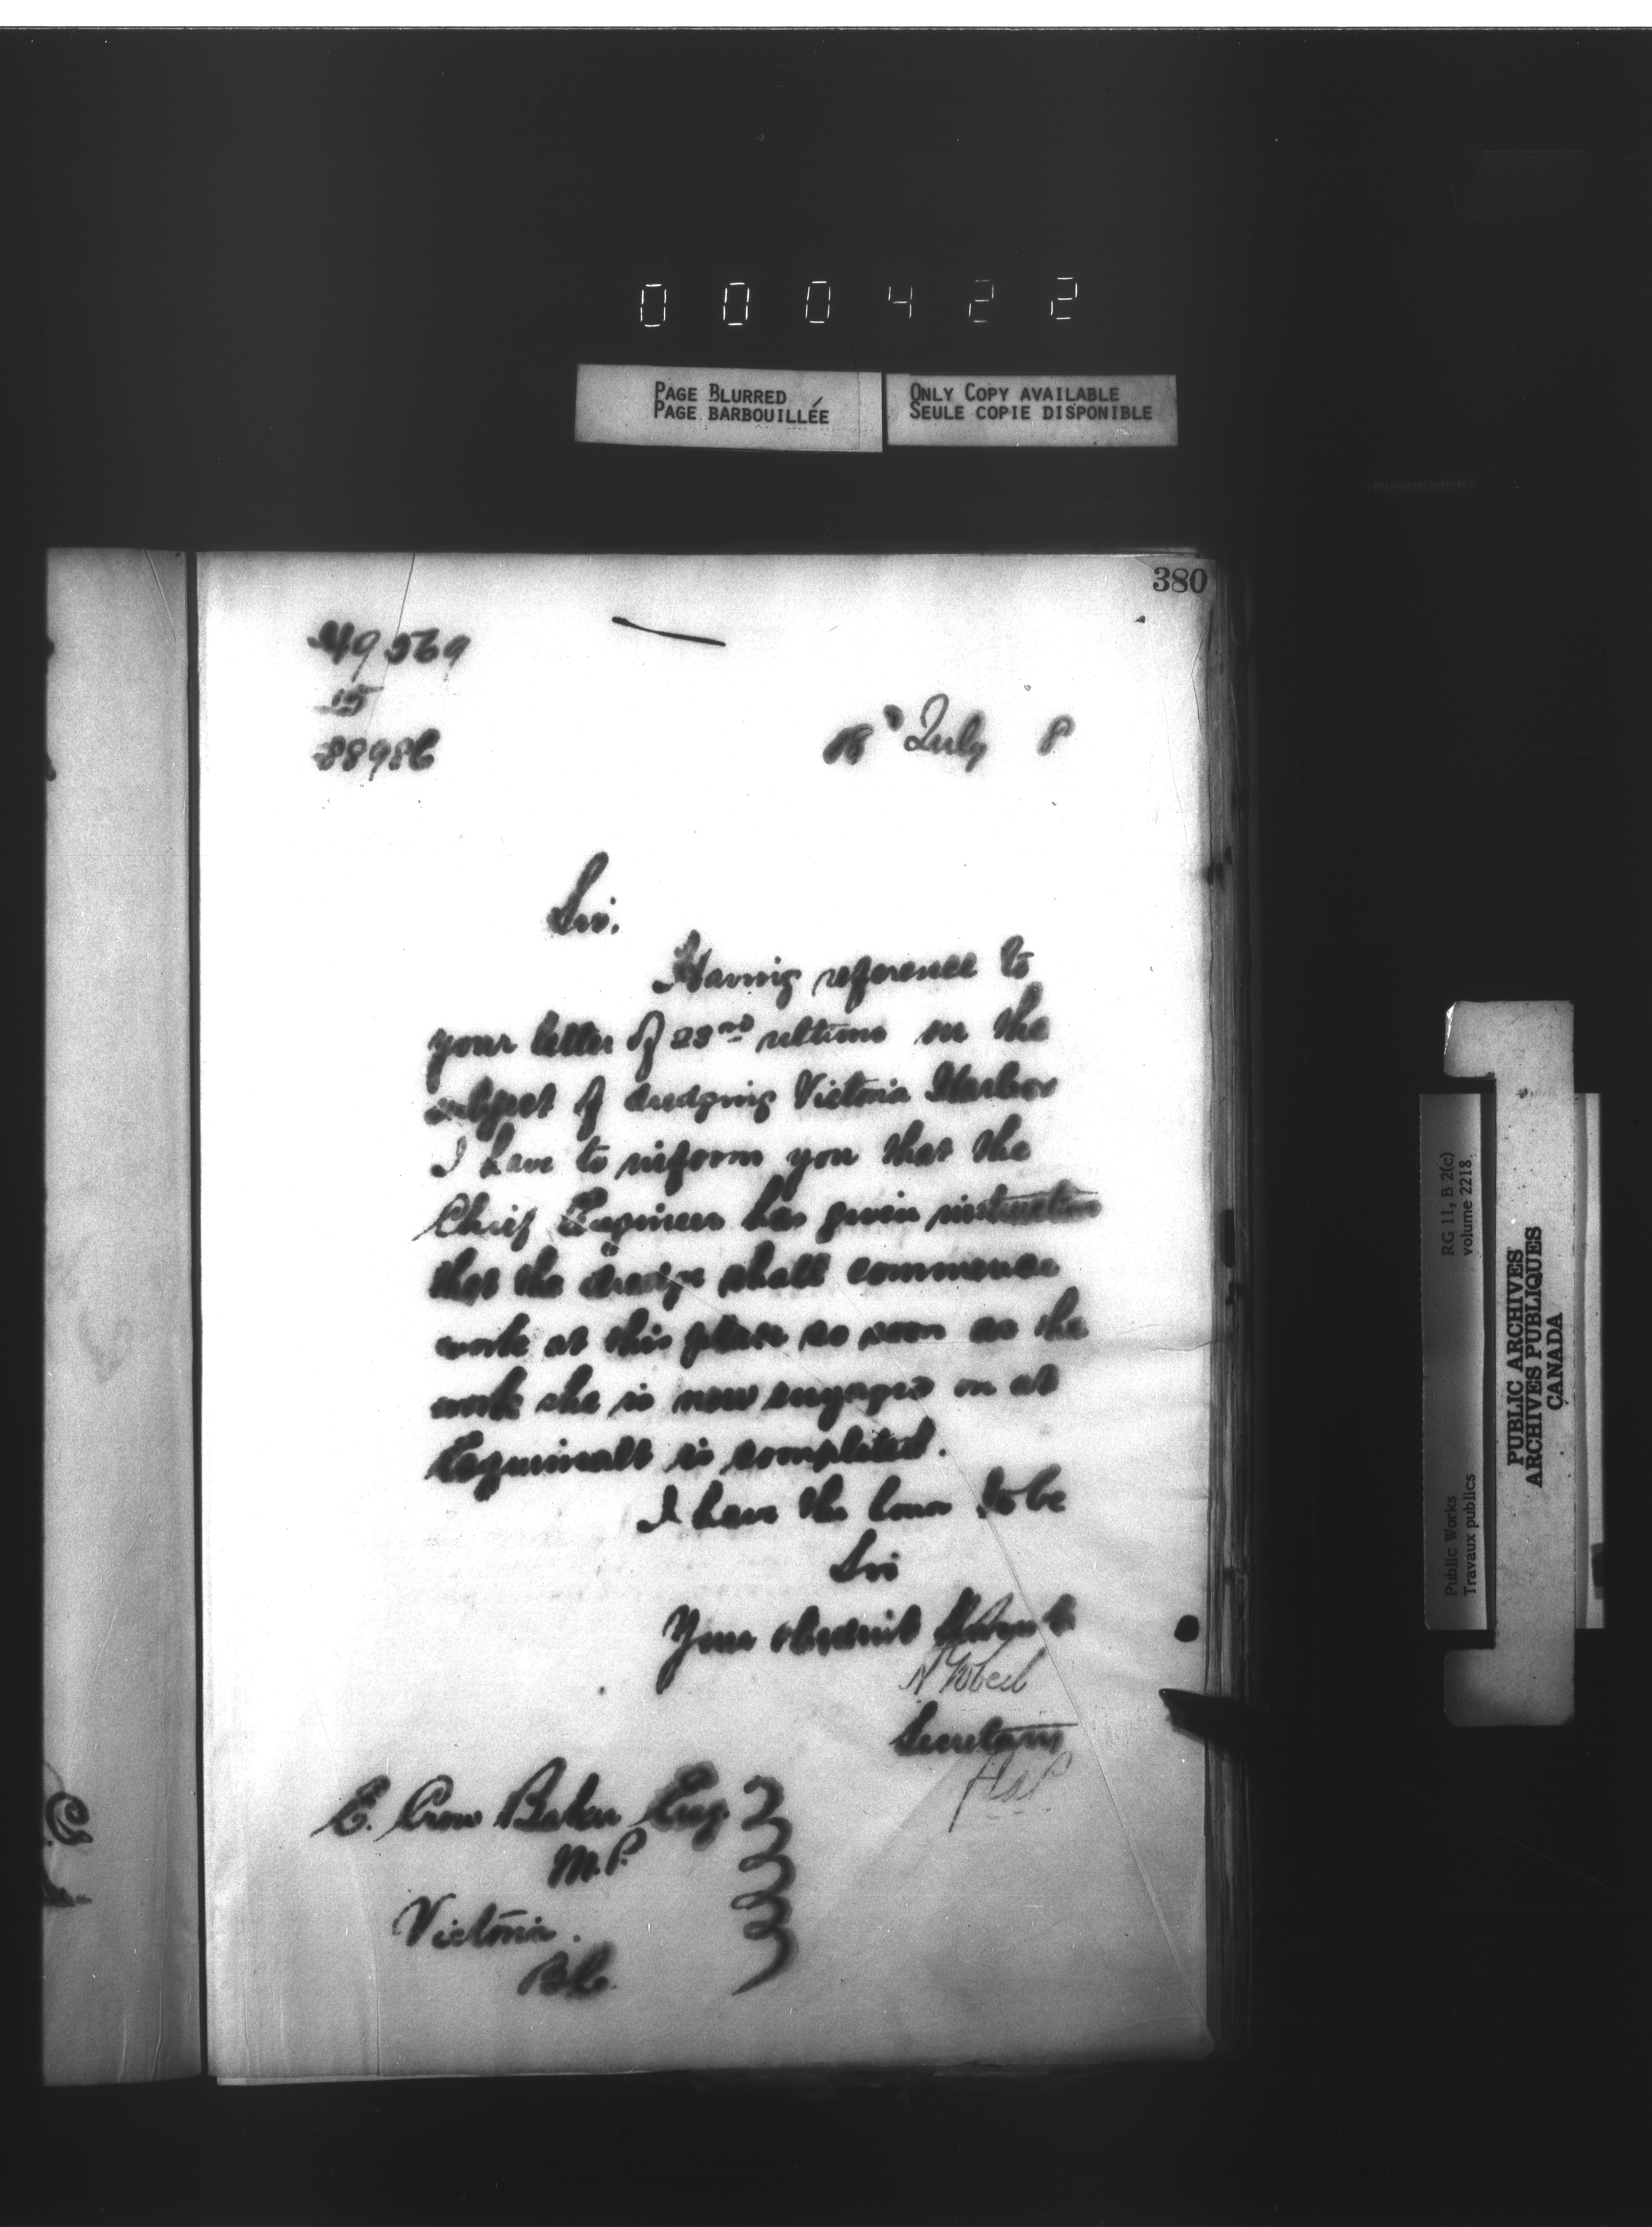 000422
PAGE BLURRED
PAGE BARBOUILLÉE
ONLY COPY AVAILABLE
SEULE COPIE DISPONIBLE
380
49569
15
88986
18th July 8
Sir.
Having reference to
your letter of 23rd ultimo on the
subject of dredging Victoria Harbor
I have to inform you that the
Chief Engineer has given instruction
that the dredge shall commence
work at this place so soon as the
work she is now engaged on at
Esquimalt is completed.
I have the honor to be
Sir
Your obedient Servant
Secretary
E. Crow Baker Esq.
M.P.
Victoria.
B.C.
Public Works RG 11, B 2(c)
Travaux publics volume 2218
PUBLIC ARCHIVES
ARCHIVES PUBLIQUES
CANADA